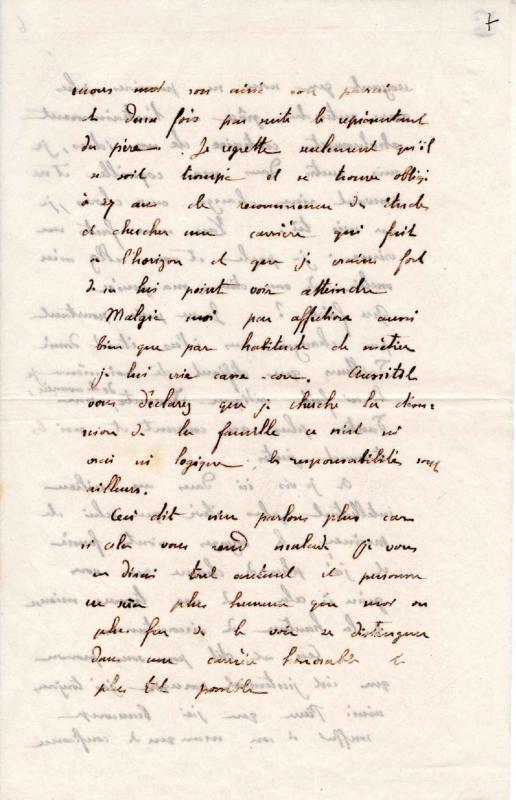 7
nous
et deux fois par suite le représentant
du père. Je regrette seulement qu'il
se soit trompé et se trouve obligé
à 29 ans de recommencer des études
et chercher une carrière qui fuit
à l'horizon et que je crains fort
de ne lui point voir atteindre
Malgré moi par affection aussi
bien que par habitude de métier
je lui crie casse-cou. Aussitôt
vous déclarez que je cherche la désu-
nion de la famille ce n'est ni
vrai ni logique, les responsabilités sont
ailleurs.
Ceci dit n'en parlons plus car
si cela vous rend malade je vous
en dirai tout autant et personne
ne sera plus heureux que moi ou
plus fier de le voir se distinguer
dans une carrière honorable le
plus tôt possible